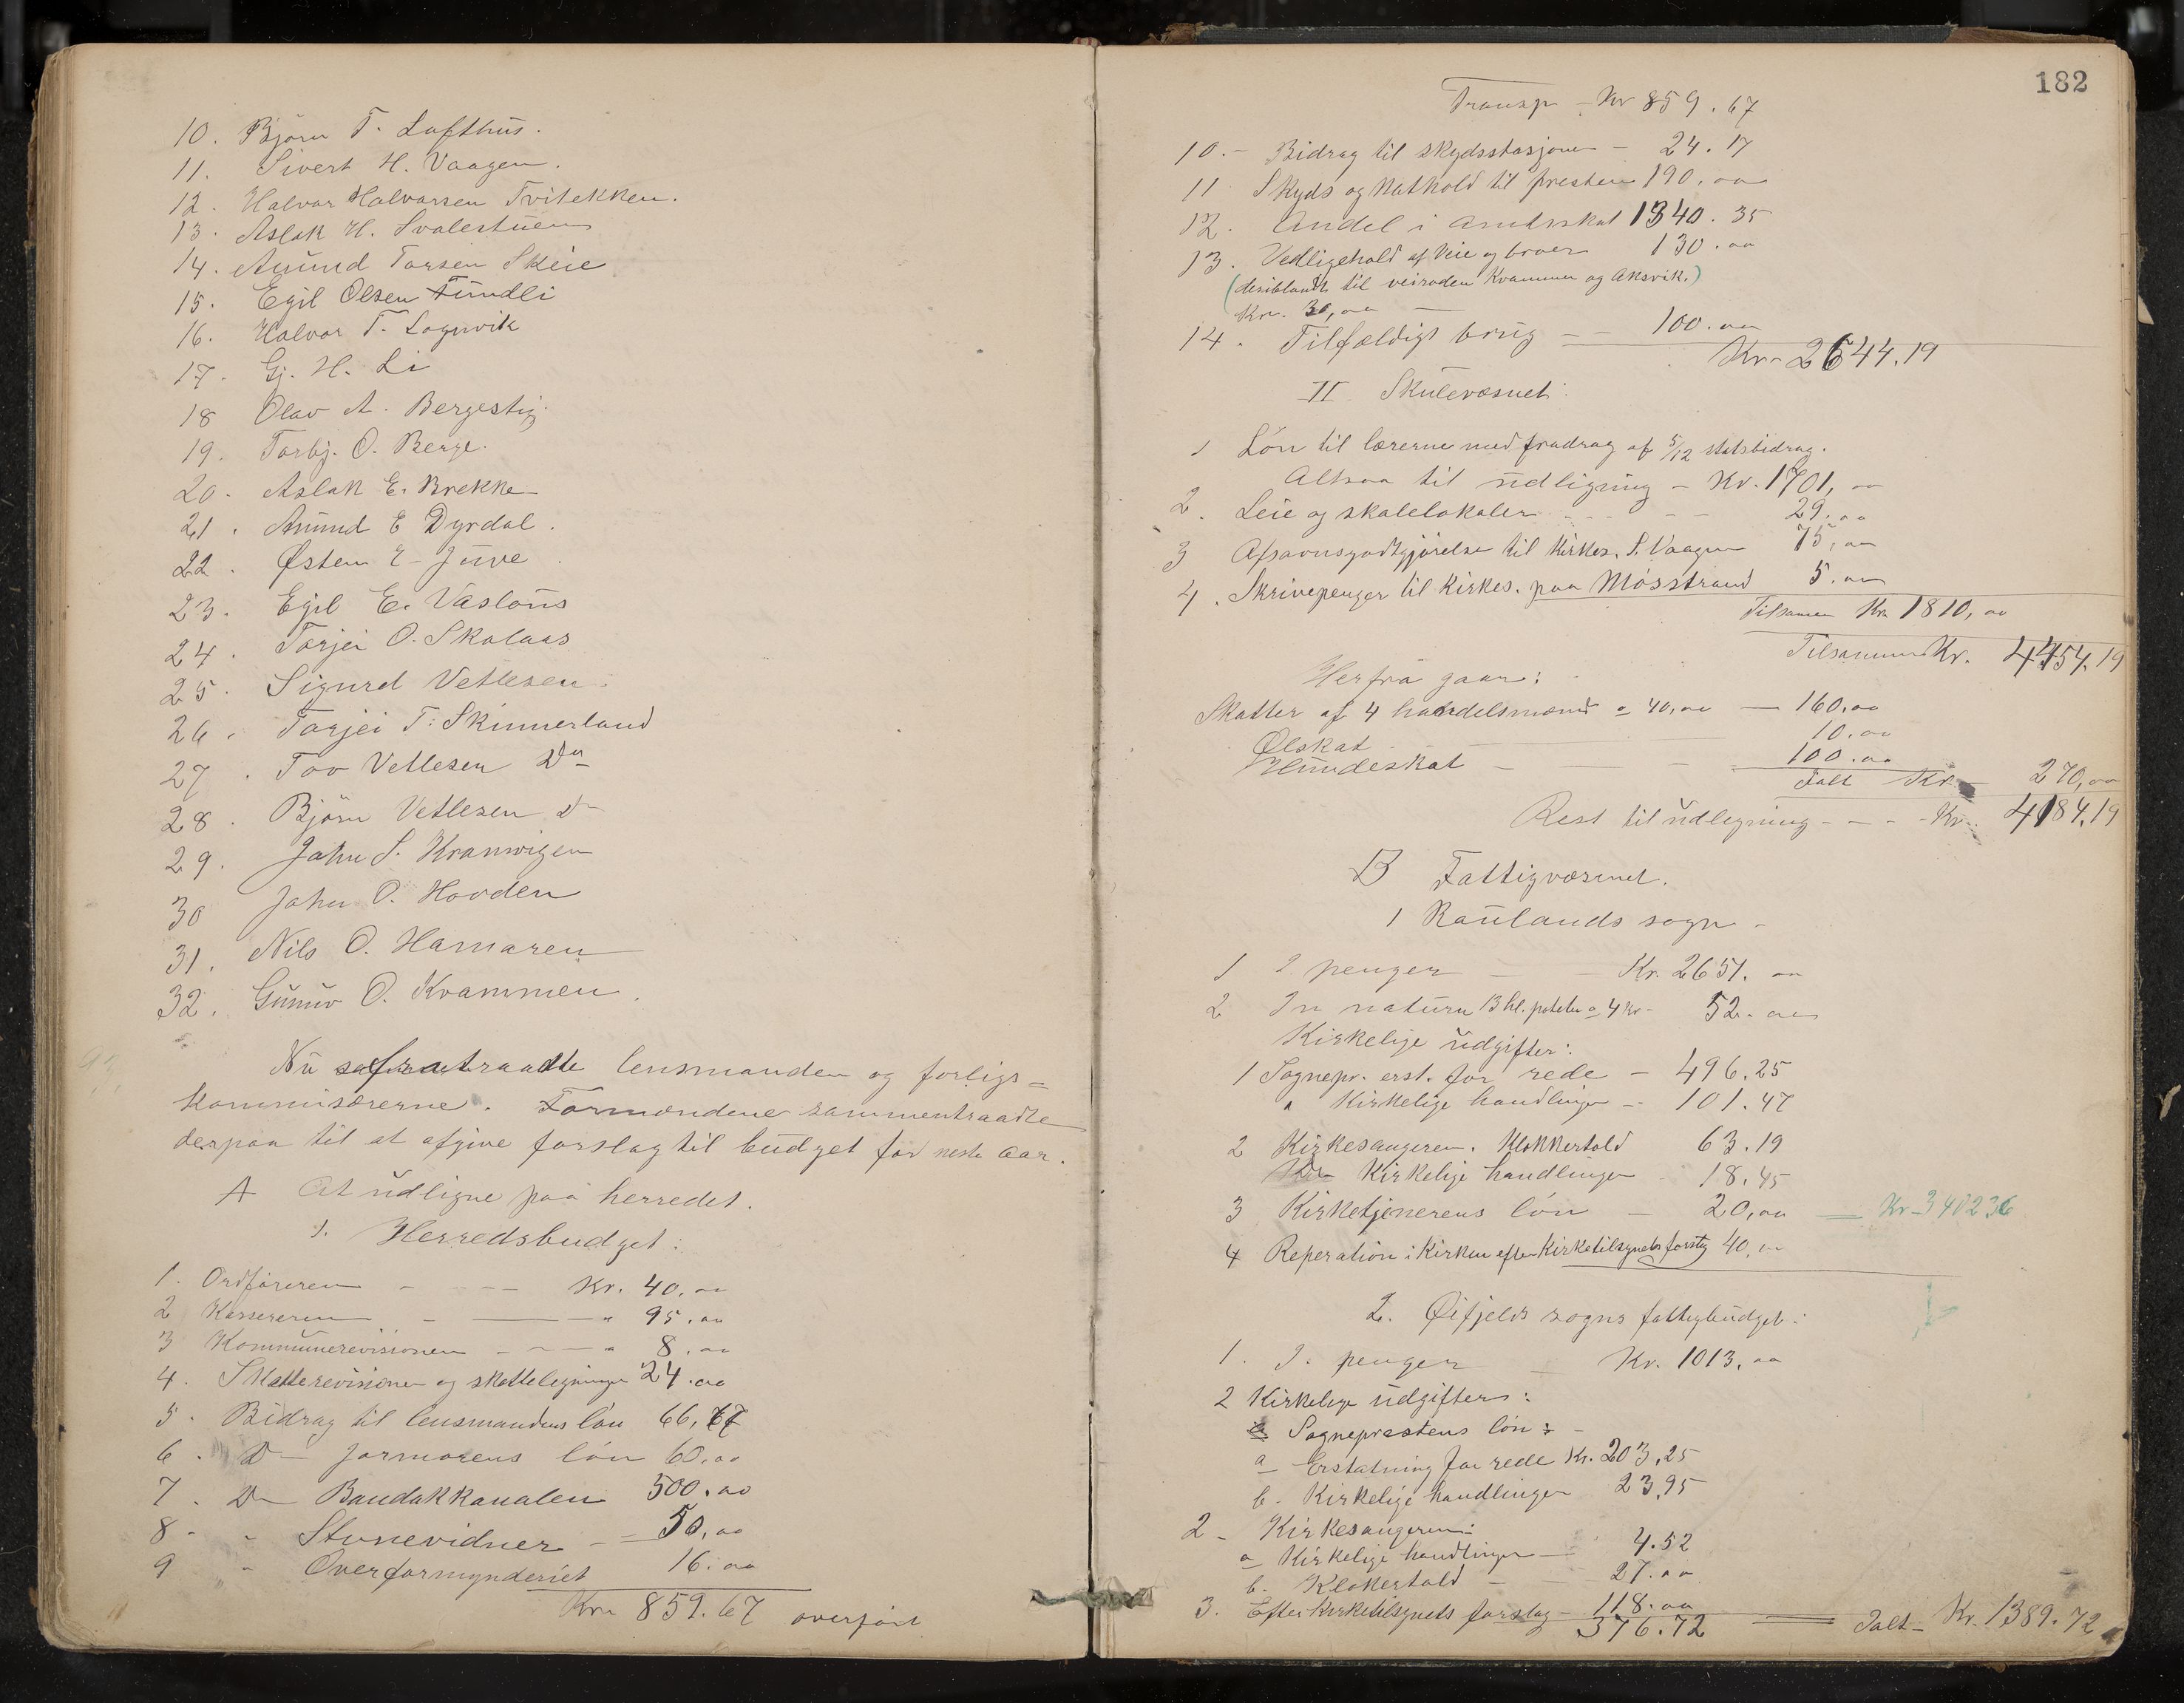 10. Björn T. Lofthus.
11. Sivert H. Vaagen.
12. Halvor Halvorsen Tvitekken.
13. Aslak H. Svalestuen
14. Amund Torsen Skeie
15. Egil Olsen Fundli
16. Halvor T. Lognvik
17. Gj. H. Li
18 Olav A. Bergestig.
19. Torbj. O. Berge.
20. Aslak E. Brekke
21. Amund E Dyrdal.
22. Østen E. Juve
23. Egil E. Vaslous
24. Torjei O. Skalaas
25. Sigurd Vetlesen
26. Torjei T. Skinnerland
27. Tov Vetlesen Do
28. Björn Vetlesen Do
29. John S. Kramvigen
30 John O. Hovden
31. Nils O. Hamaren
32. Gunuv O. Kvammen.
Nu fratraadte lensmanden og forligs=
kommisærerne. Formændene sammentraadte
derpaa til at afgive forslag til budget for neste aar.
A At udligne paa herredet.
1. Herredsbudget:
1. Ordföreren - - - Kr. 40,00
2 Kassereren - - " 95.00
3 Kommunerevisionen - - - " 8.00
4. Skatterevisionen og skattelegningen 24.00
5. Bidrag til lensmandens lön 66,67
6. Do jormorens lön 60,00
7. Do Bandakkanalen 500.00
8. " Stunevidner - 50,00
9 " Overformynderiet 16.00
Kr 859.67 overfört
182
Transp - Kr 859.67
10. - Bidrag til skydsstasjoner - 24.17
11 Skyds og Nathold til presten 190.00
12. Andel i amtsskat 1340.35
13. Vedligehold af Veie og broer 130.00
(deriblandt til veiroden Kvammen og Aksvik.)
Kr. 30,00
14. Tilfældigt brug - - 100.00
Kr. 2644.19
II. Skulevæsnet:
1 Lön til lærerne med fradrag af 5/12 statsbidrag.
Altsaa til udligning - Kr. 1701,00
2. Leie og skolelokaler - - - 29.00
3 Afsavnsgodtgjörelse til Kirkes. S. Vaagen 75,00
4. Skrivepenger til Kirkes. paa Mösstrand 5.00
Tilsamen Kr. 1810,00
Tilsammen Kr. 4454.19
Herfra gaar:
Skatter af 4 handelsmænd a 40,00 — 160.00
Ølskat 10.00
Hundeskat - - - 100.00
Ialt Kr 270,00
Rest til udlegning - - - Kr. 4184.19
B Fattigvæsnet.
1 Raulands sogn -
1 I penger - Kr. 2651.00
2 In natura 13 hl. poteter a 4 kr - 52.00
Kirkelige udgifter:
1 Sognepr. erst. for rede - 496.25
" Kirkelige handlinger - 101.47
2 Kirkesangeren. Klokkertold 63.19
Do Kirkelige handlinger 18.45
3 Kirketjenerens lön - 20,00 = Kr 340236
4 Reperation i Kirken efter Kirketilsynets forslg 40.00
2. Øifjelds sogns fattigbudget:
1. I. penger Kr. 1013.00
2 Kirkelige udgifter:
Sogneprestens lön:
a Erstatning for rede Kr. 203,25
b. Kirkelige handlinger 23,95
2 - Kirkesangeren:
a Kirkelige handlinger - 4.52
b. Klokertold - 27.00
3. Efter Kirketilsynets forslag - 118.00
376.72 = Ialt - Kr. 1389.72